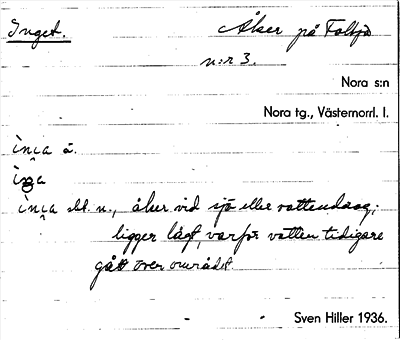 Inget.
Åker på Falsjö
n:r 3.
Nora s:n
Nora tg., Västernorrl. l.
ìnìa å.
ìnìa
ìnìa ett. n., åker vid sjö eller vattendrag;
ligger lågt, varför vatten tidigare
gått över området
Sven Hiller 1936.